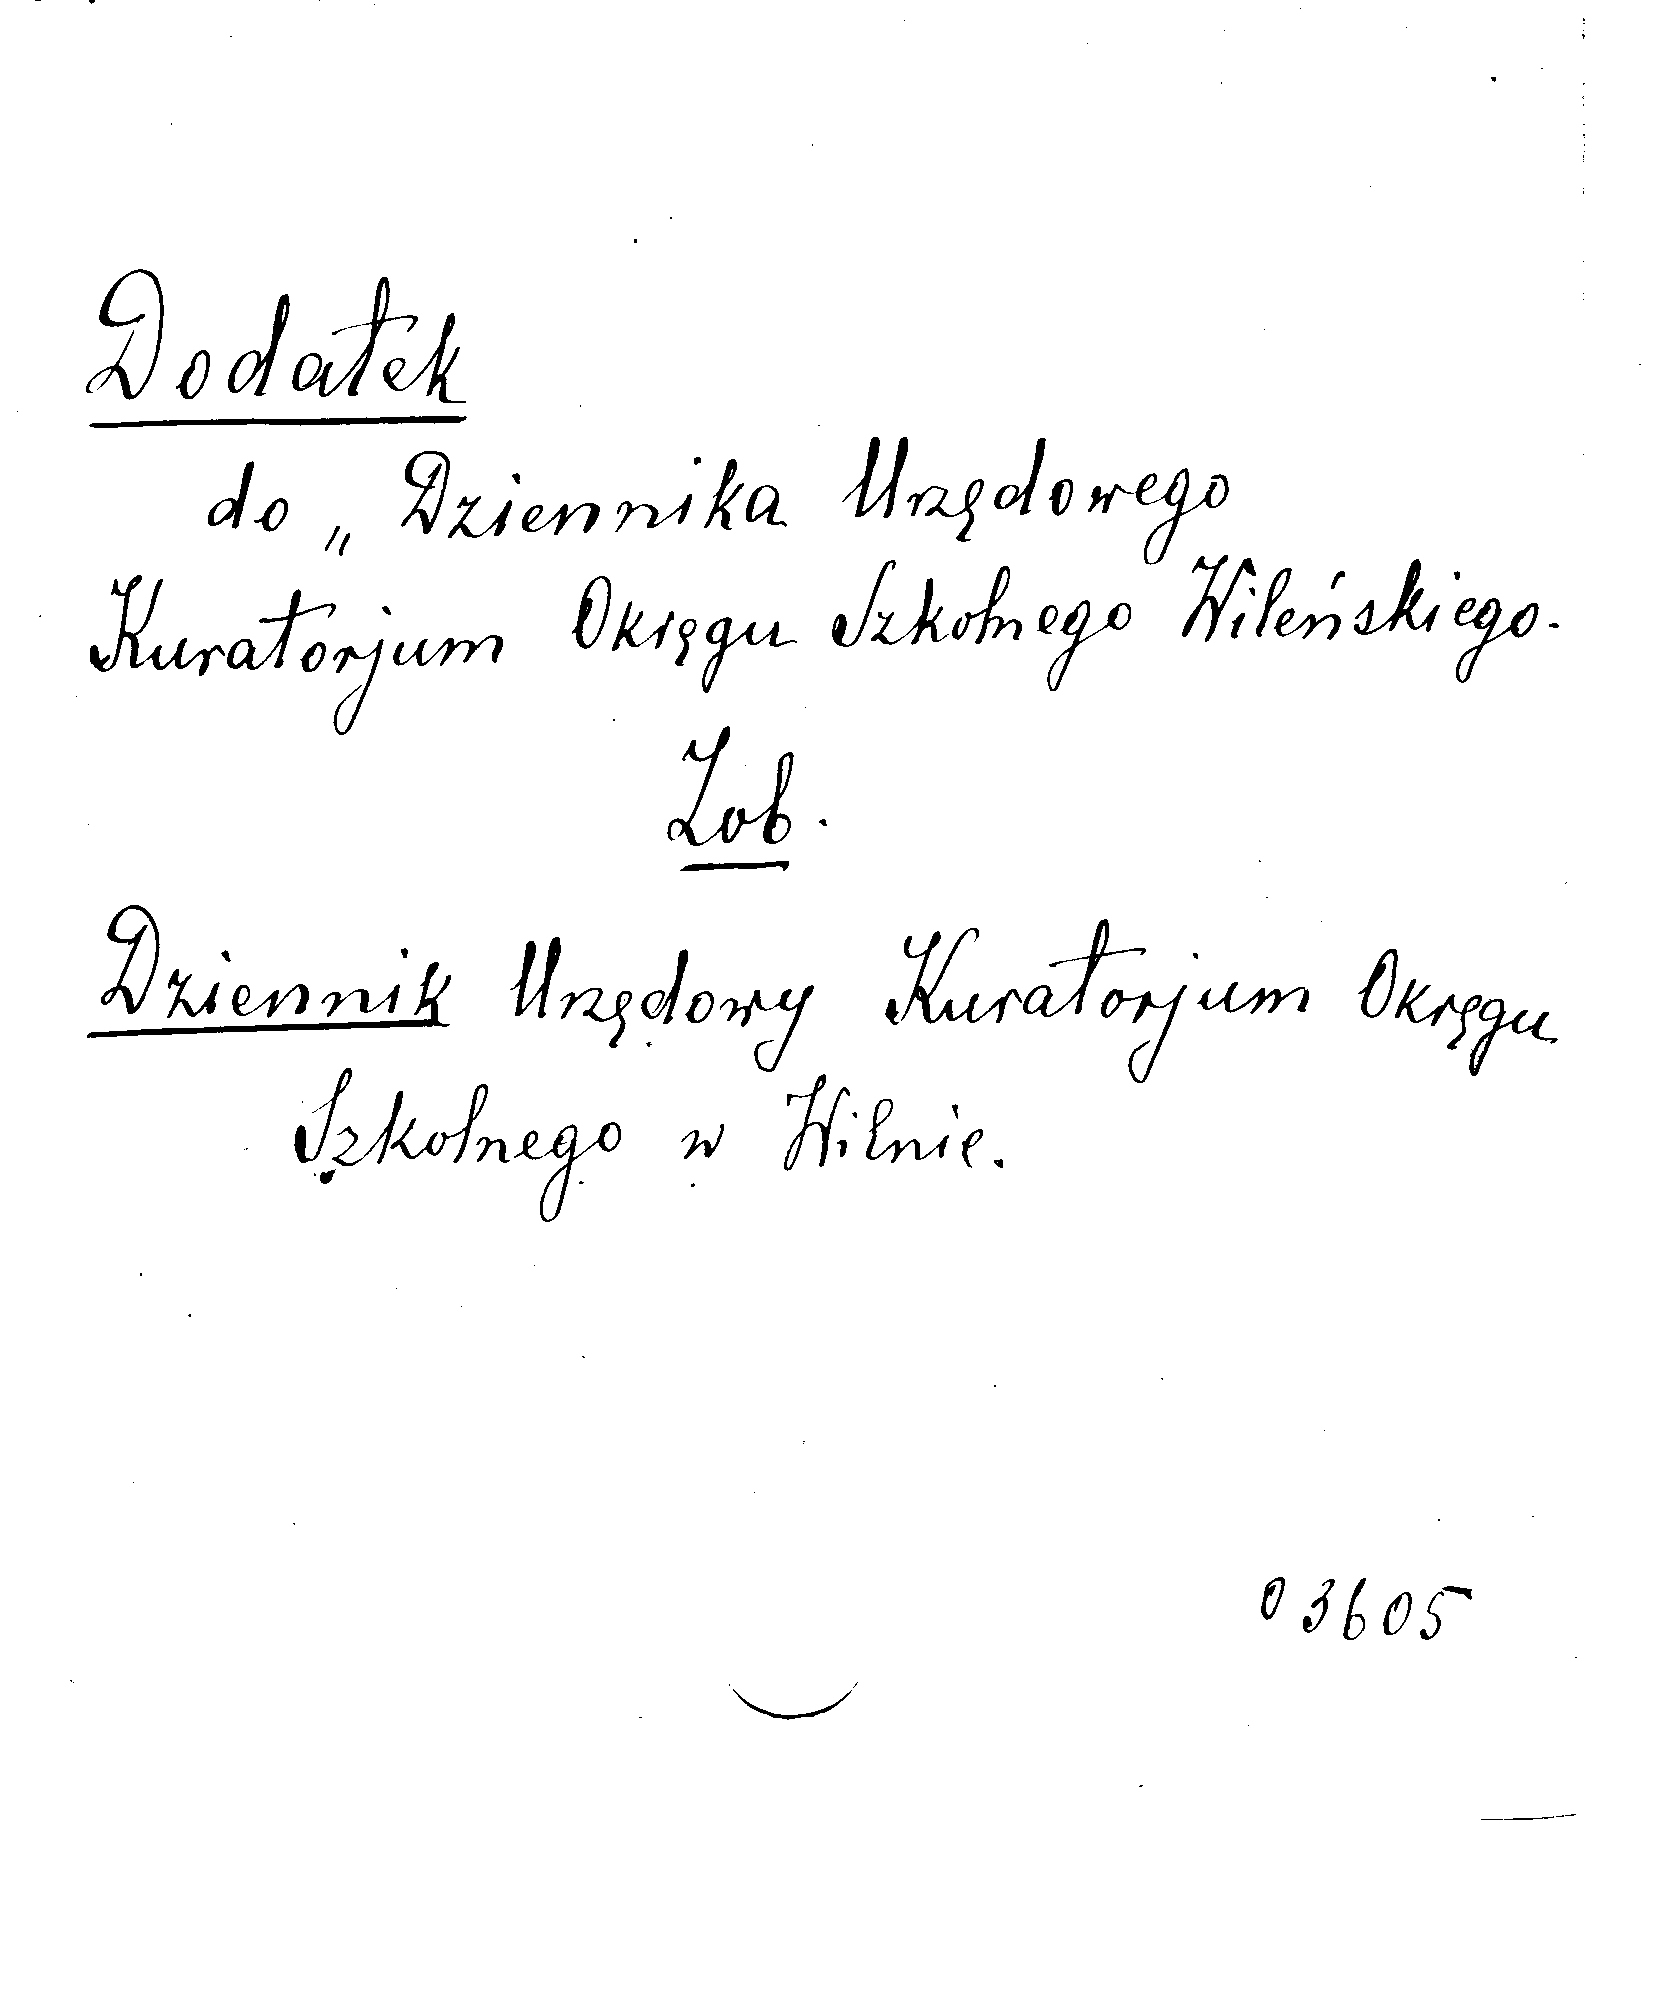 Dodatek
do „Dziennika Urzędowego
Kuratorjum Okręgu Szkolnego Wileńskiego.
Zob.
Dziennik Urzędowy Kuratorjum Okręgu
Szkolnego w Wilnie.
03605